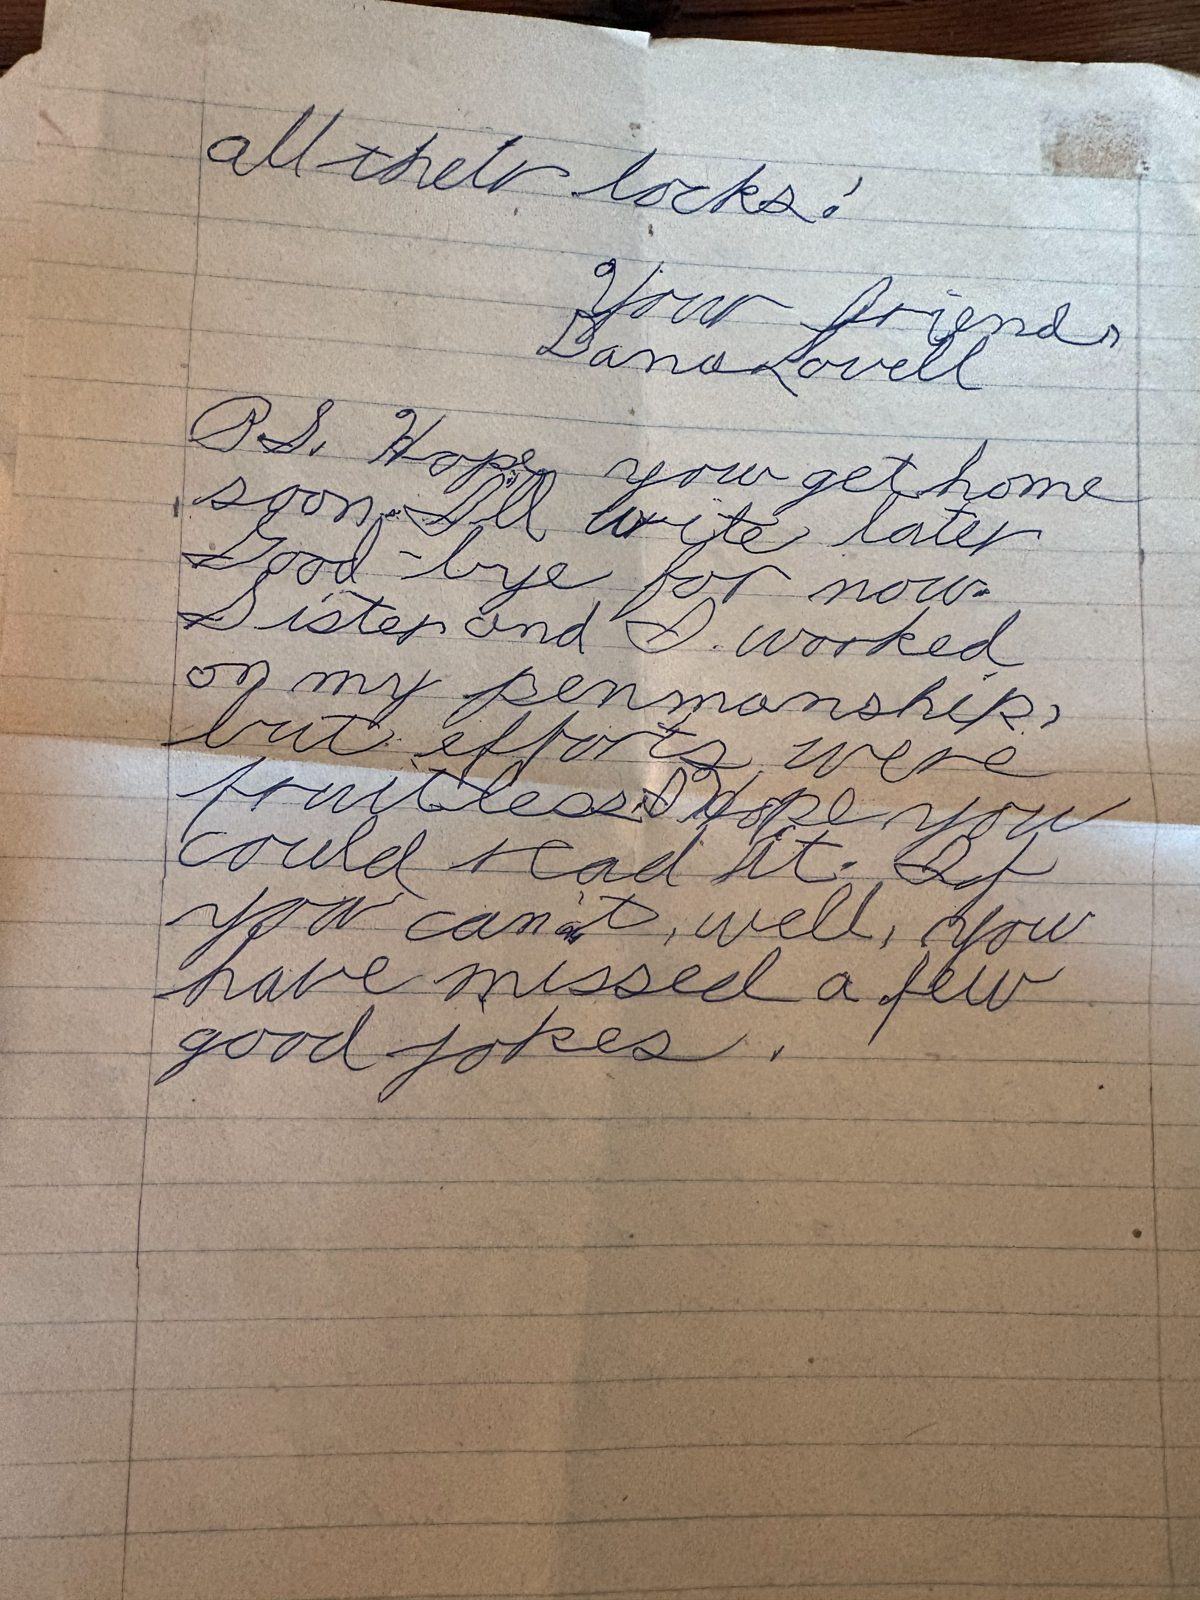 all their locks!
Your friend,
Dana Lovell
P.S. Hope you get home
soon. I'll write later
Good-bye for now.
Sister and I worked
on my penmanship,
but efforts were
fruitless. I Hope you
could read it. If
you can't, well, you
have missed a few
good jokes.